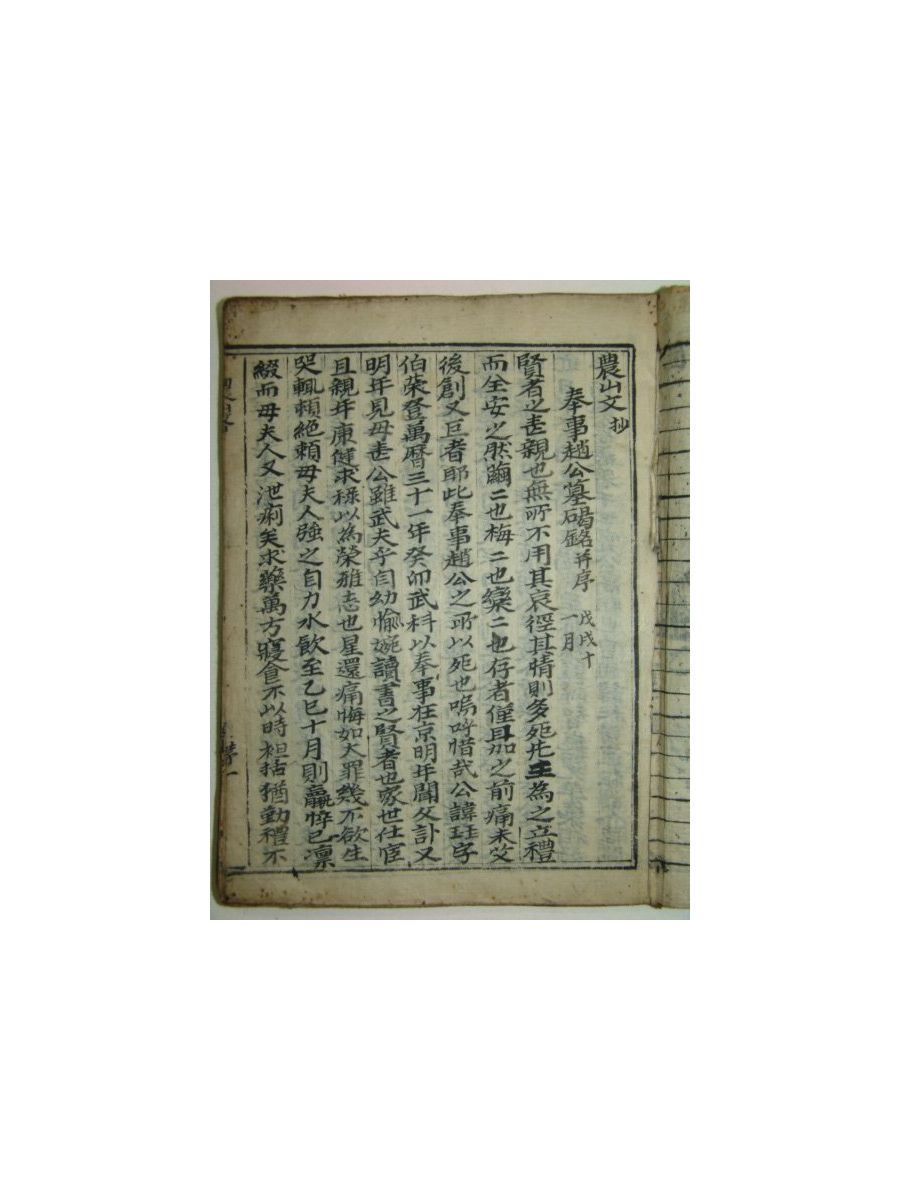 農山文 抄
奉事趙公墓碣銘并序 戊戌十一月
賢者之喪親也無所不用其哀徑其情則多死先王為之立禮
而全安之然繭二也梅二也欒二也仔者僅耳加之前痛未艾
後創又巨者耶此奉事趙公之所以死也嗚呼惜哉公諱珏字
伯榮登萬曆三十一年癸卯武科以奉事在京明年聞父訃又
明年見母喪公雖武夫乎自幼愉婉讀書之賢者也家世仕宦
且親年康健求祿以為榮雅志也星還痛悔如大罪幾不欲生
哭輒頼絕賴母夫人強之自力水飲至乙巳十月則羸悴已凛
綴而母夫人又泄痢矣求藥萬方寢食不以時袒括猶勤禮不